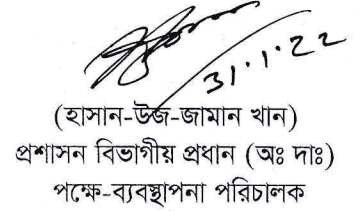 31.1.22
(হাসান-উজ-জামান খান)
প্রশাসন বিভাগীয় প্রধান (অঃ দাঃ)
পক্ষে-ব্যবস্থাপনা পরিচালক